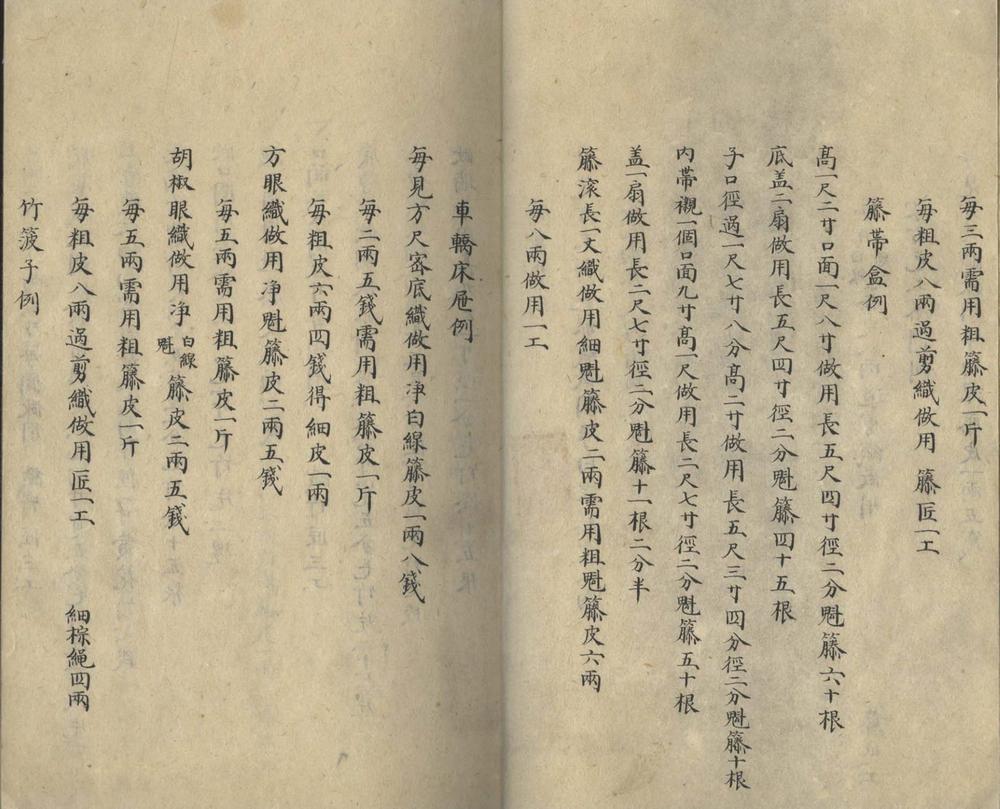 每三兩需用粗籐皮一斤
每粗皮八兩過剪織做用 籐匠一工
籐帶盒例
高一尺二寸口面一尺八寸做用長五尺四寸徑二分魁籐六十根
底盖二扇做用長五尺四寸徑二分魁籐四十五根
子口徑過一尺七寸八分高二寸做用長五尺三寸四分徑二分魁籐十根
内帶襯一個口面九寸高一尺做用長二尺七寸徑二分魁籐五十根
盖一扇做用長二尺七寸徑二分魁籐十一根二分半
籐滚長一丈織做用細魁籐皮二兩需用粗魁籐皮六兩
每八兩做用一工
車轎床屉例
每見方尺宻底織做用净白線籐皮一兩八錢
每二兩五錢需用粗籐皮一斤
每粗皮六兩四錢得細皮一兩
方眼織做用净魁籐皮二兩五錢
每五兩需用粗籐皮一斤
胡椒眼織做用净白線魁籐皮二兩五錢
每五兩需用粗籐皮一斤
每粗皮八兩過剪織做用匠一工 細棕繩四兩
竹箥子例